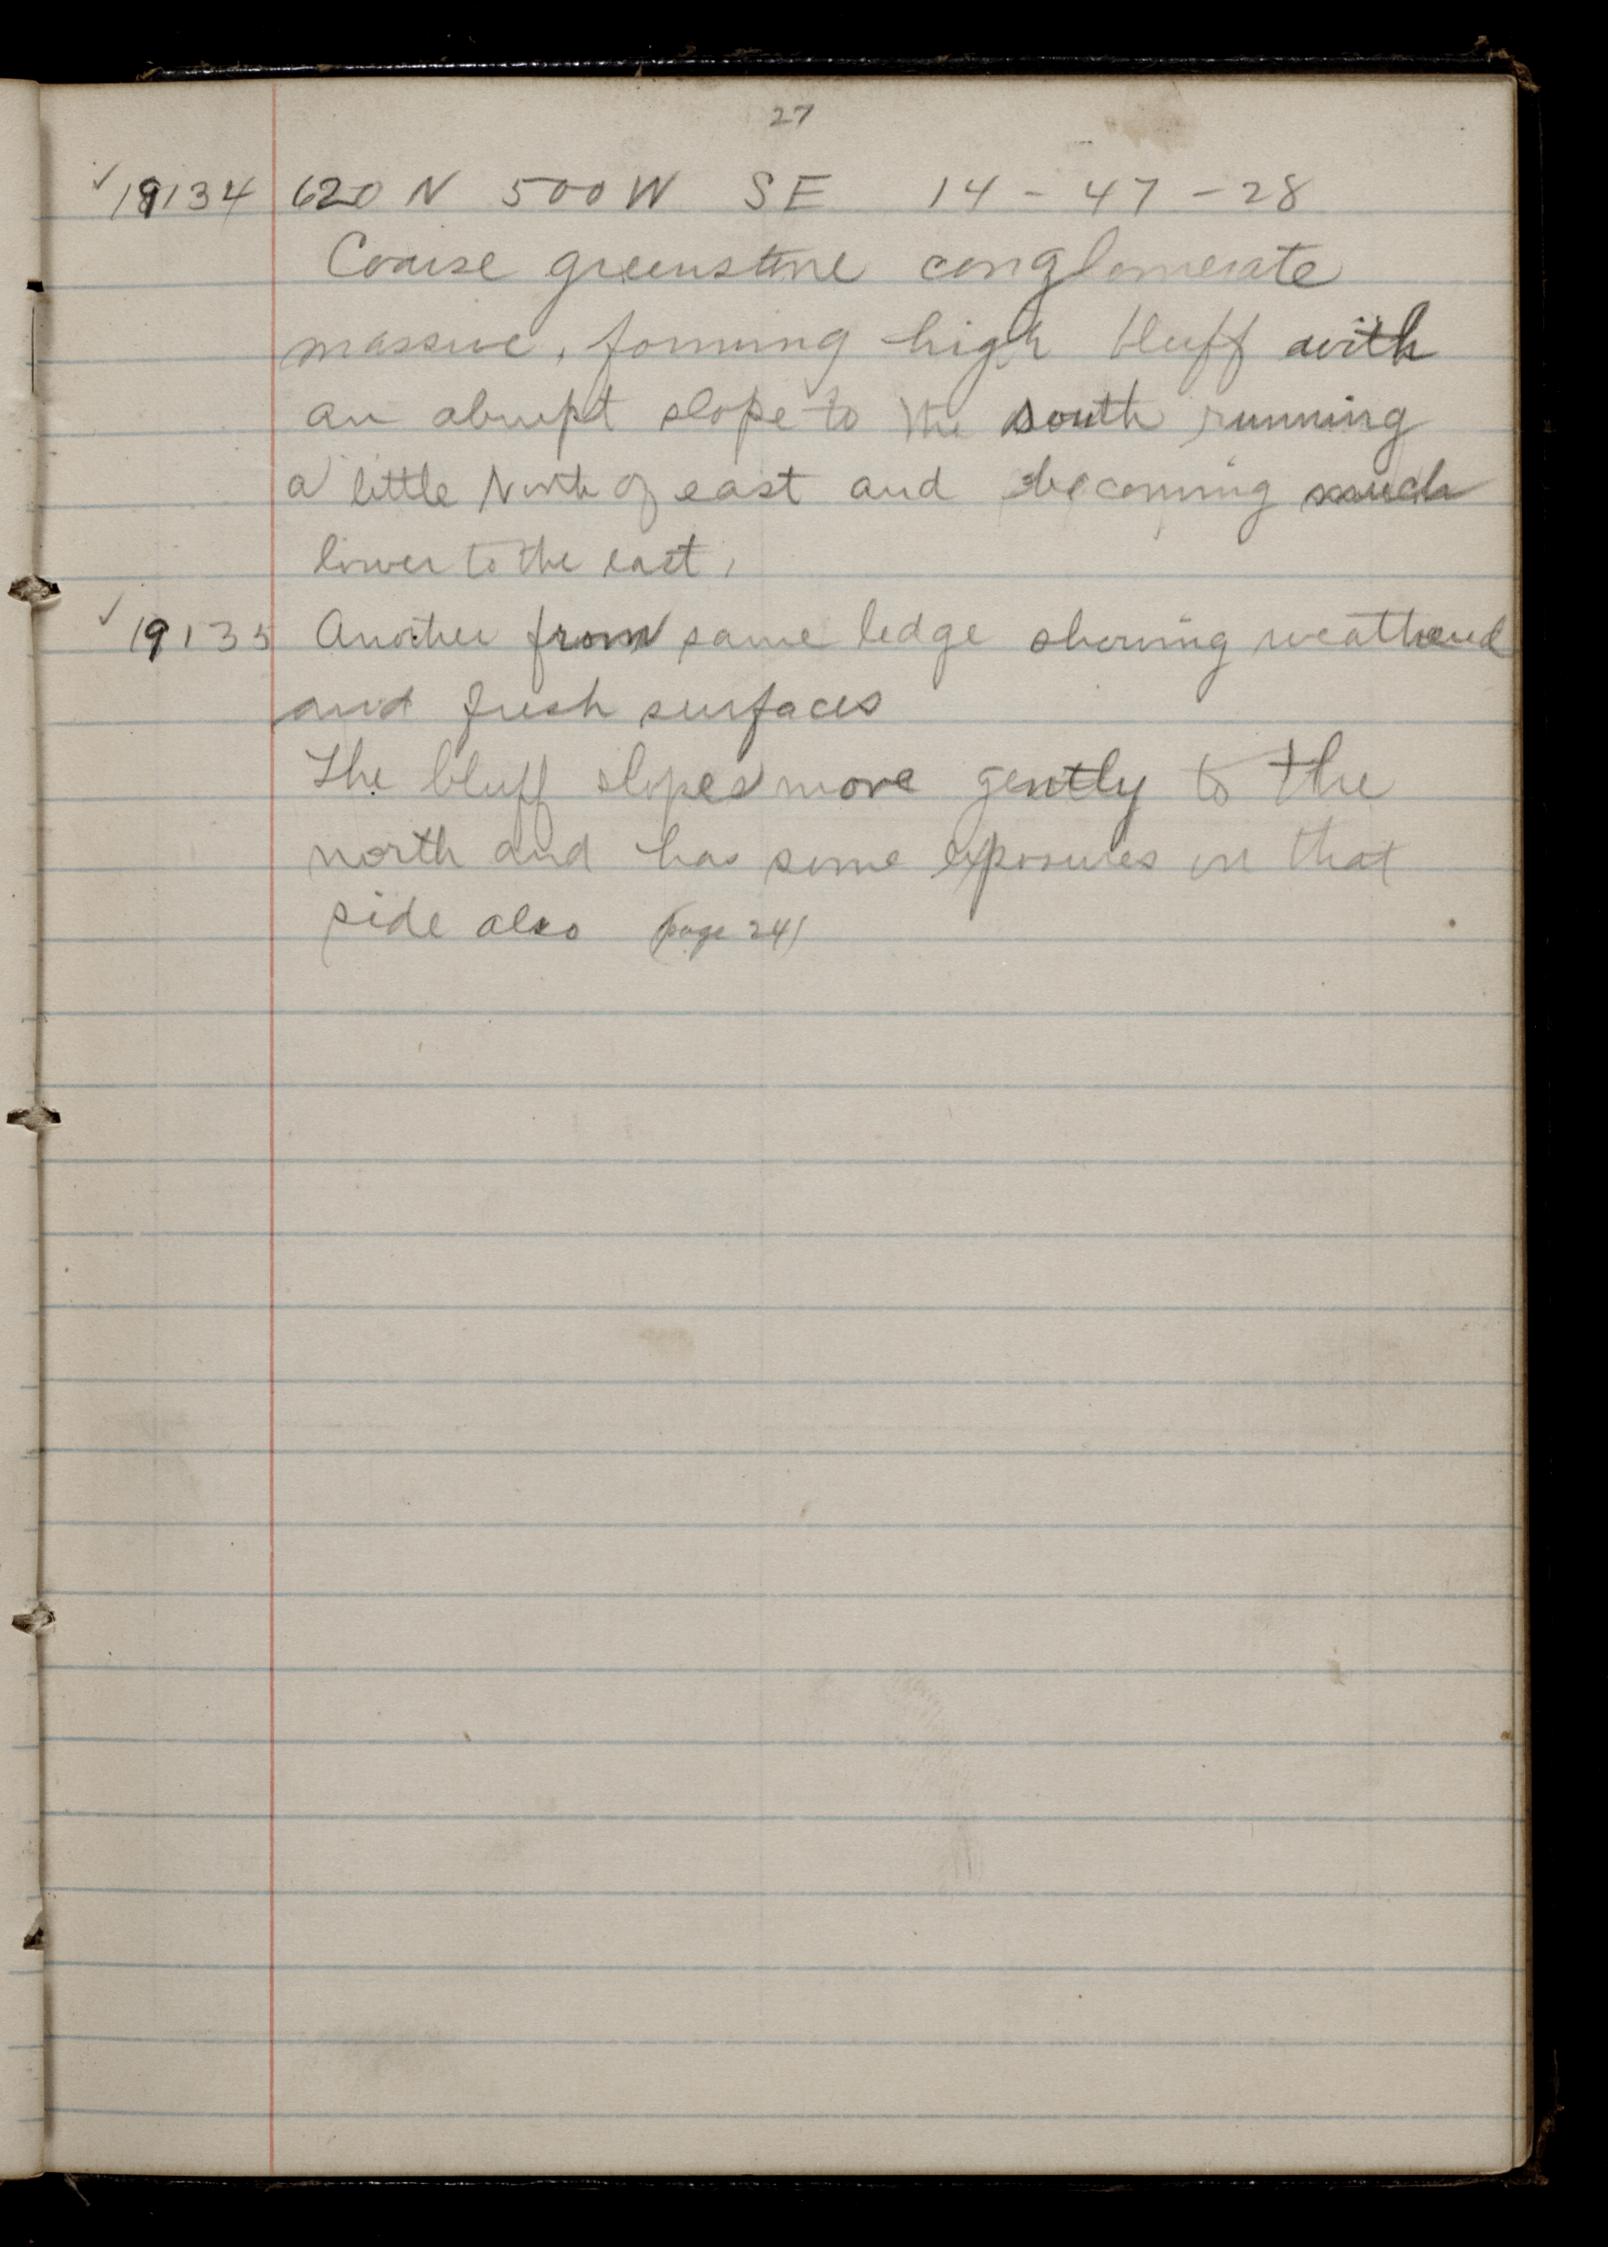 27
✓ 19134 620 N 500 W SE 14 - 47 - 28
Coarse greenstone conglomerate
massive, forming high bluff with
an abrupt slope to the south running
a little North of east and becoming much
lower to the east,
✓ 19135 Another from same ledge showing weathered
and fresh surfaces
The bluff slopes more gently to the
north and has some exposures on that
side also (page 24)